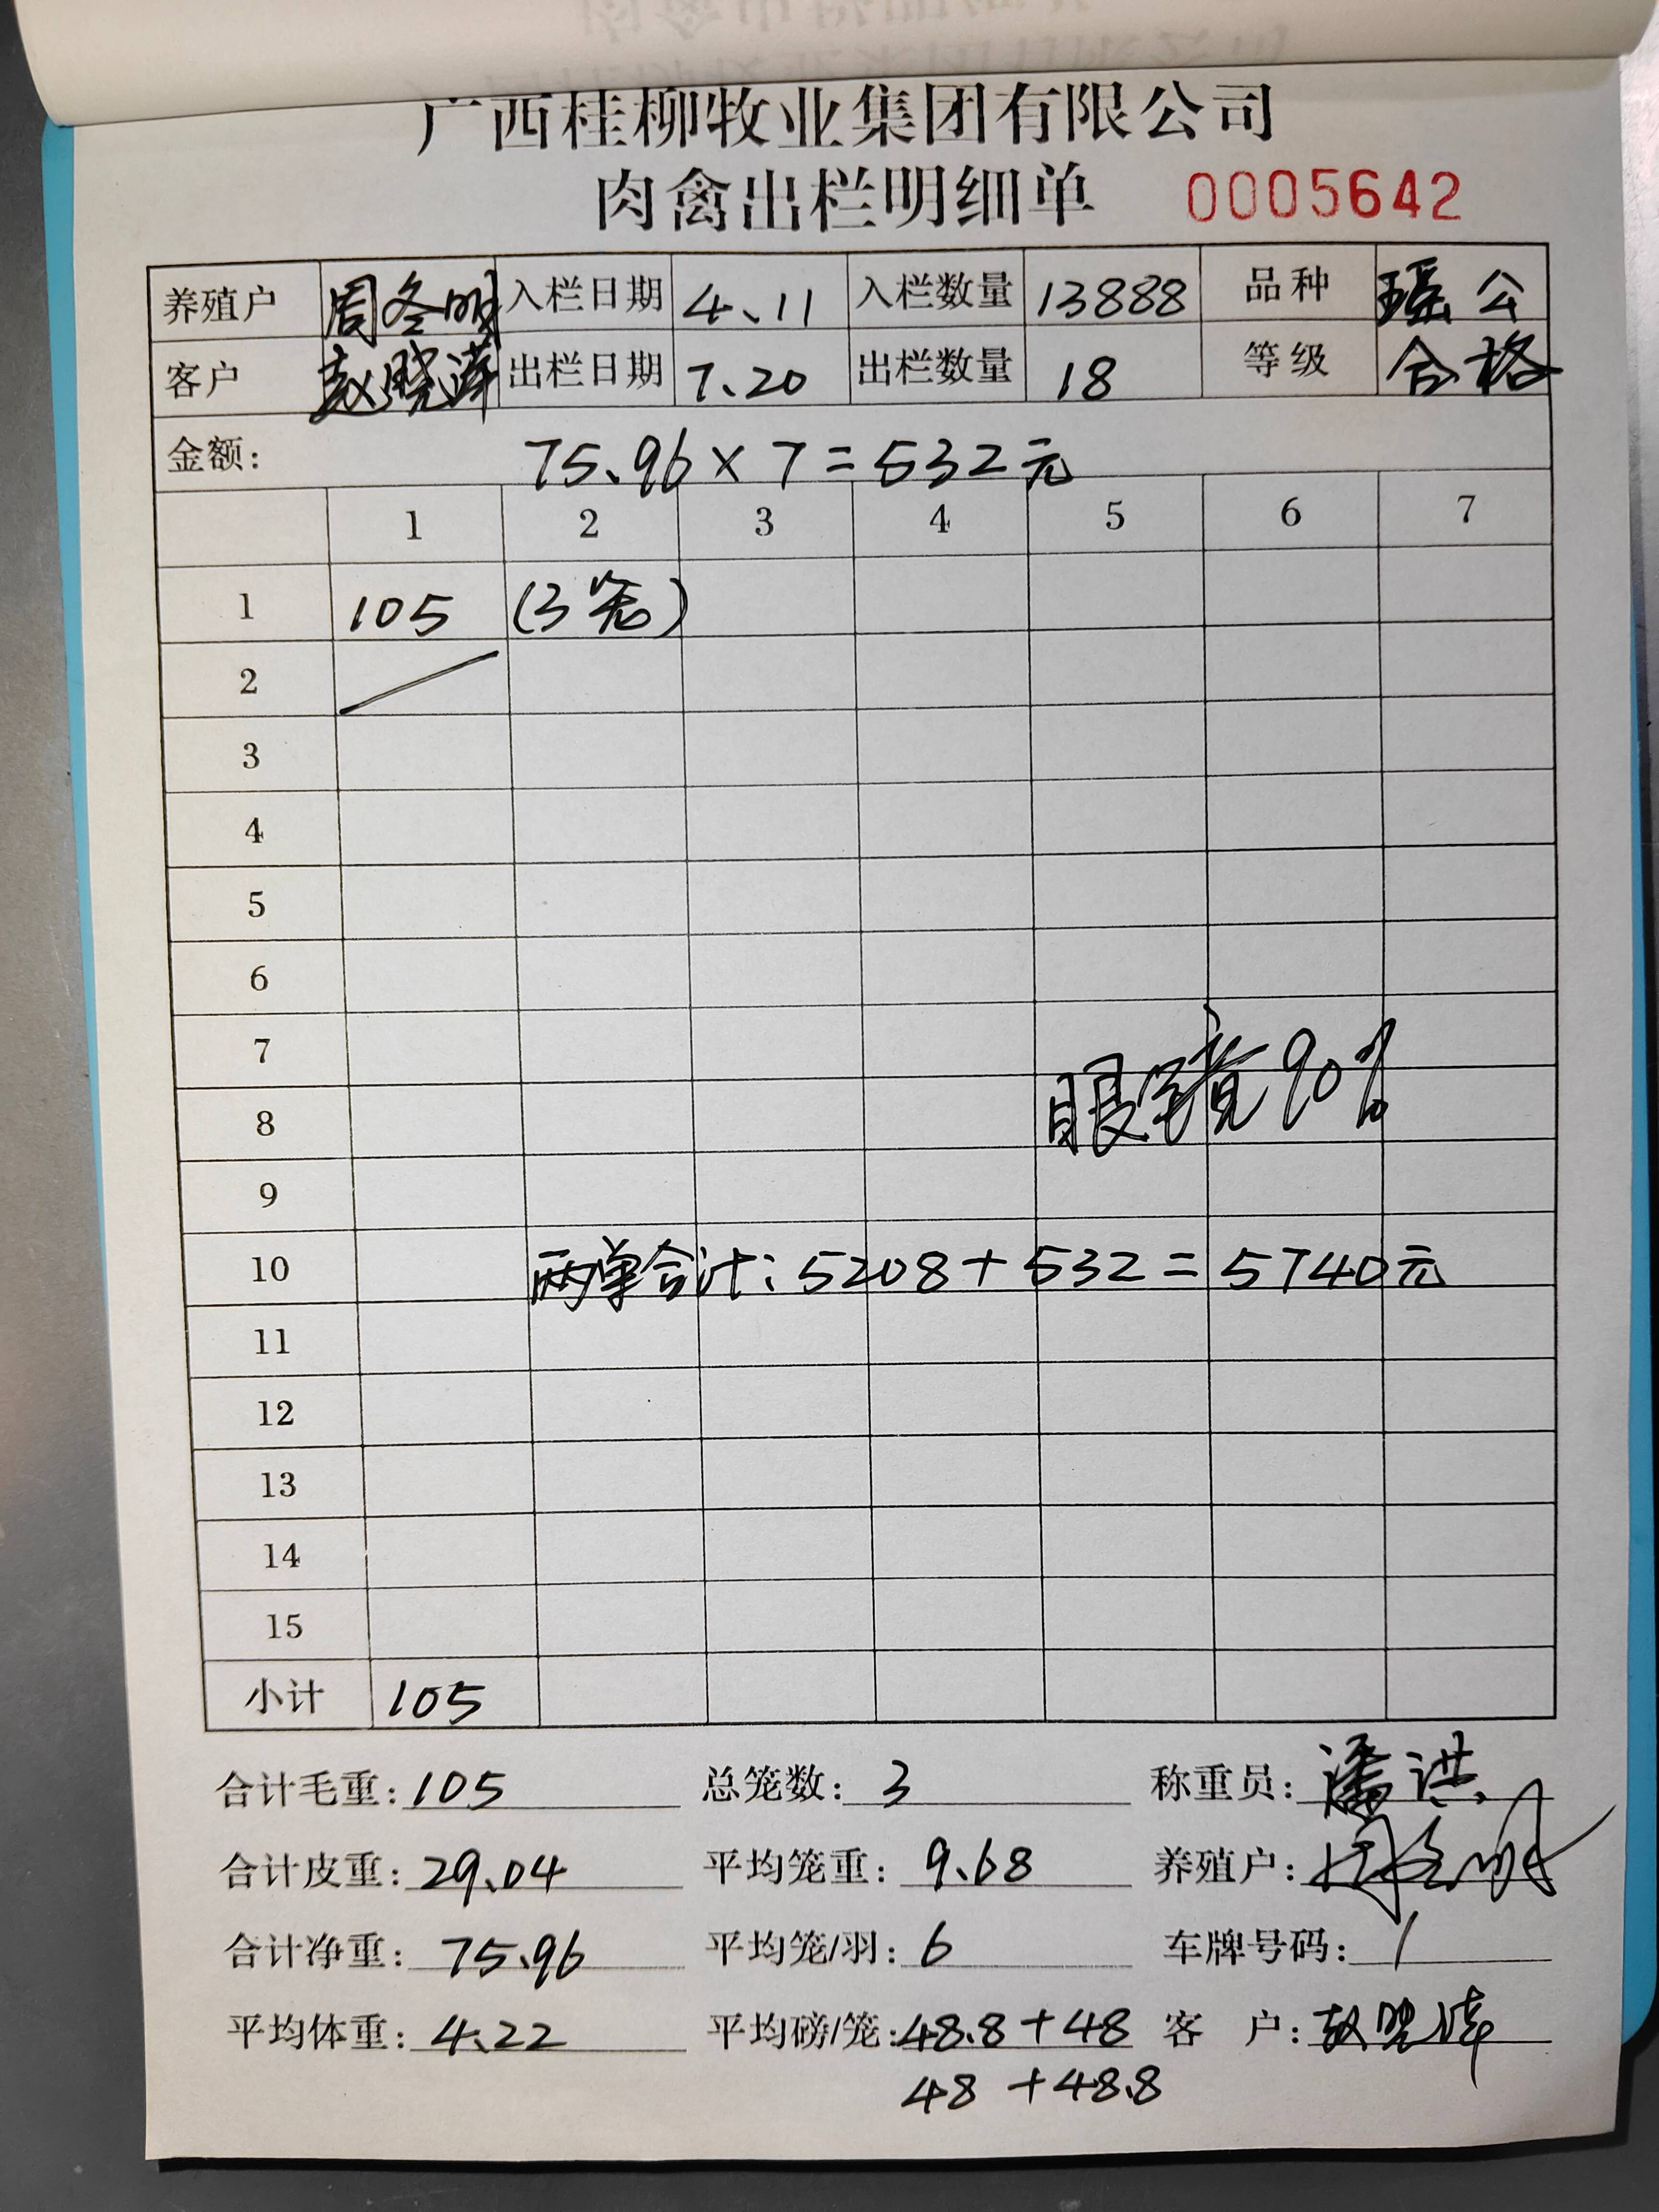 广西桂柳牧业集团有限公司
肉禽出栏明细单 0005642
养殖户 周冬明 入栏日期 4、11 入栏数量 13888 品种 瑶公
客户 赵晓萍 出栏日期 7、20 出栏数量 18 等级 合格
金额: 75、96×7=532元
1 2 3 4 5 6 7
1 105 (3笼)
2
3
4
5
6
7
眼镜90%
8
9
10 两单合计:5208+532=5740元
11
12
13
14
15
小计 105
合计毛重:105 总笼数:3 称重员:潘洪
合计皮重:29、04 平均笼重:9、68 养殖户:周冬明
合计净重:75、96 平均笼/羽:6 车牌号码:/
平均体重:4、22 平均磅/笼:48.8+48 客 户:赵晓萍
48+48.8